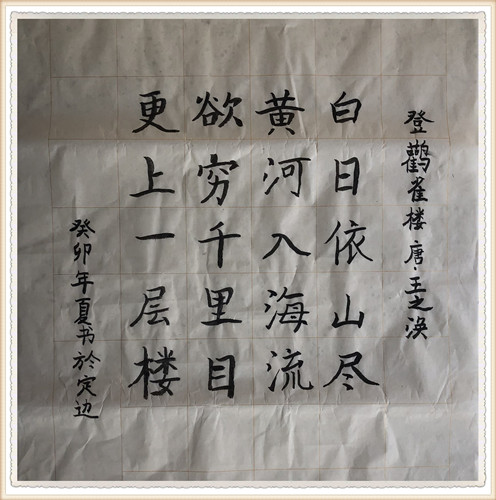 登鹳雀楼 唐·王之涣
白日依山尽
黄河入海流
欲穷千里目
更上一层楼
癸卯年夏书於定边